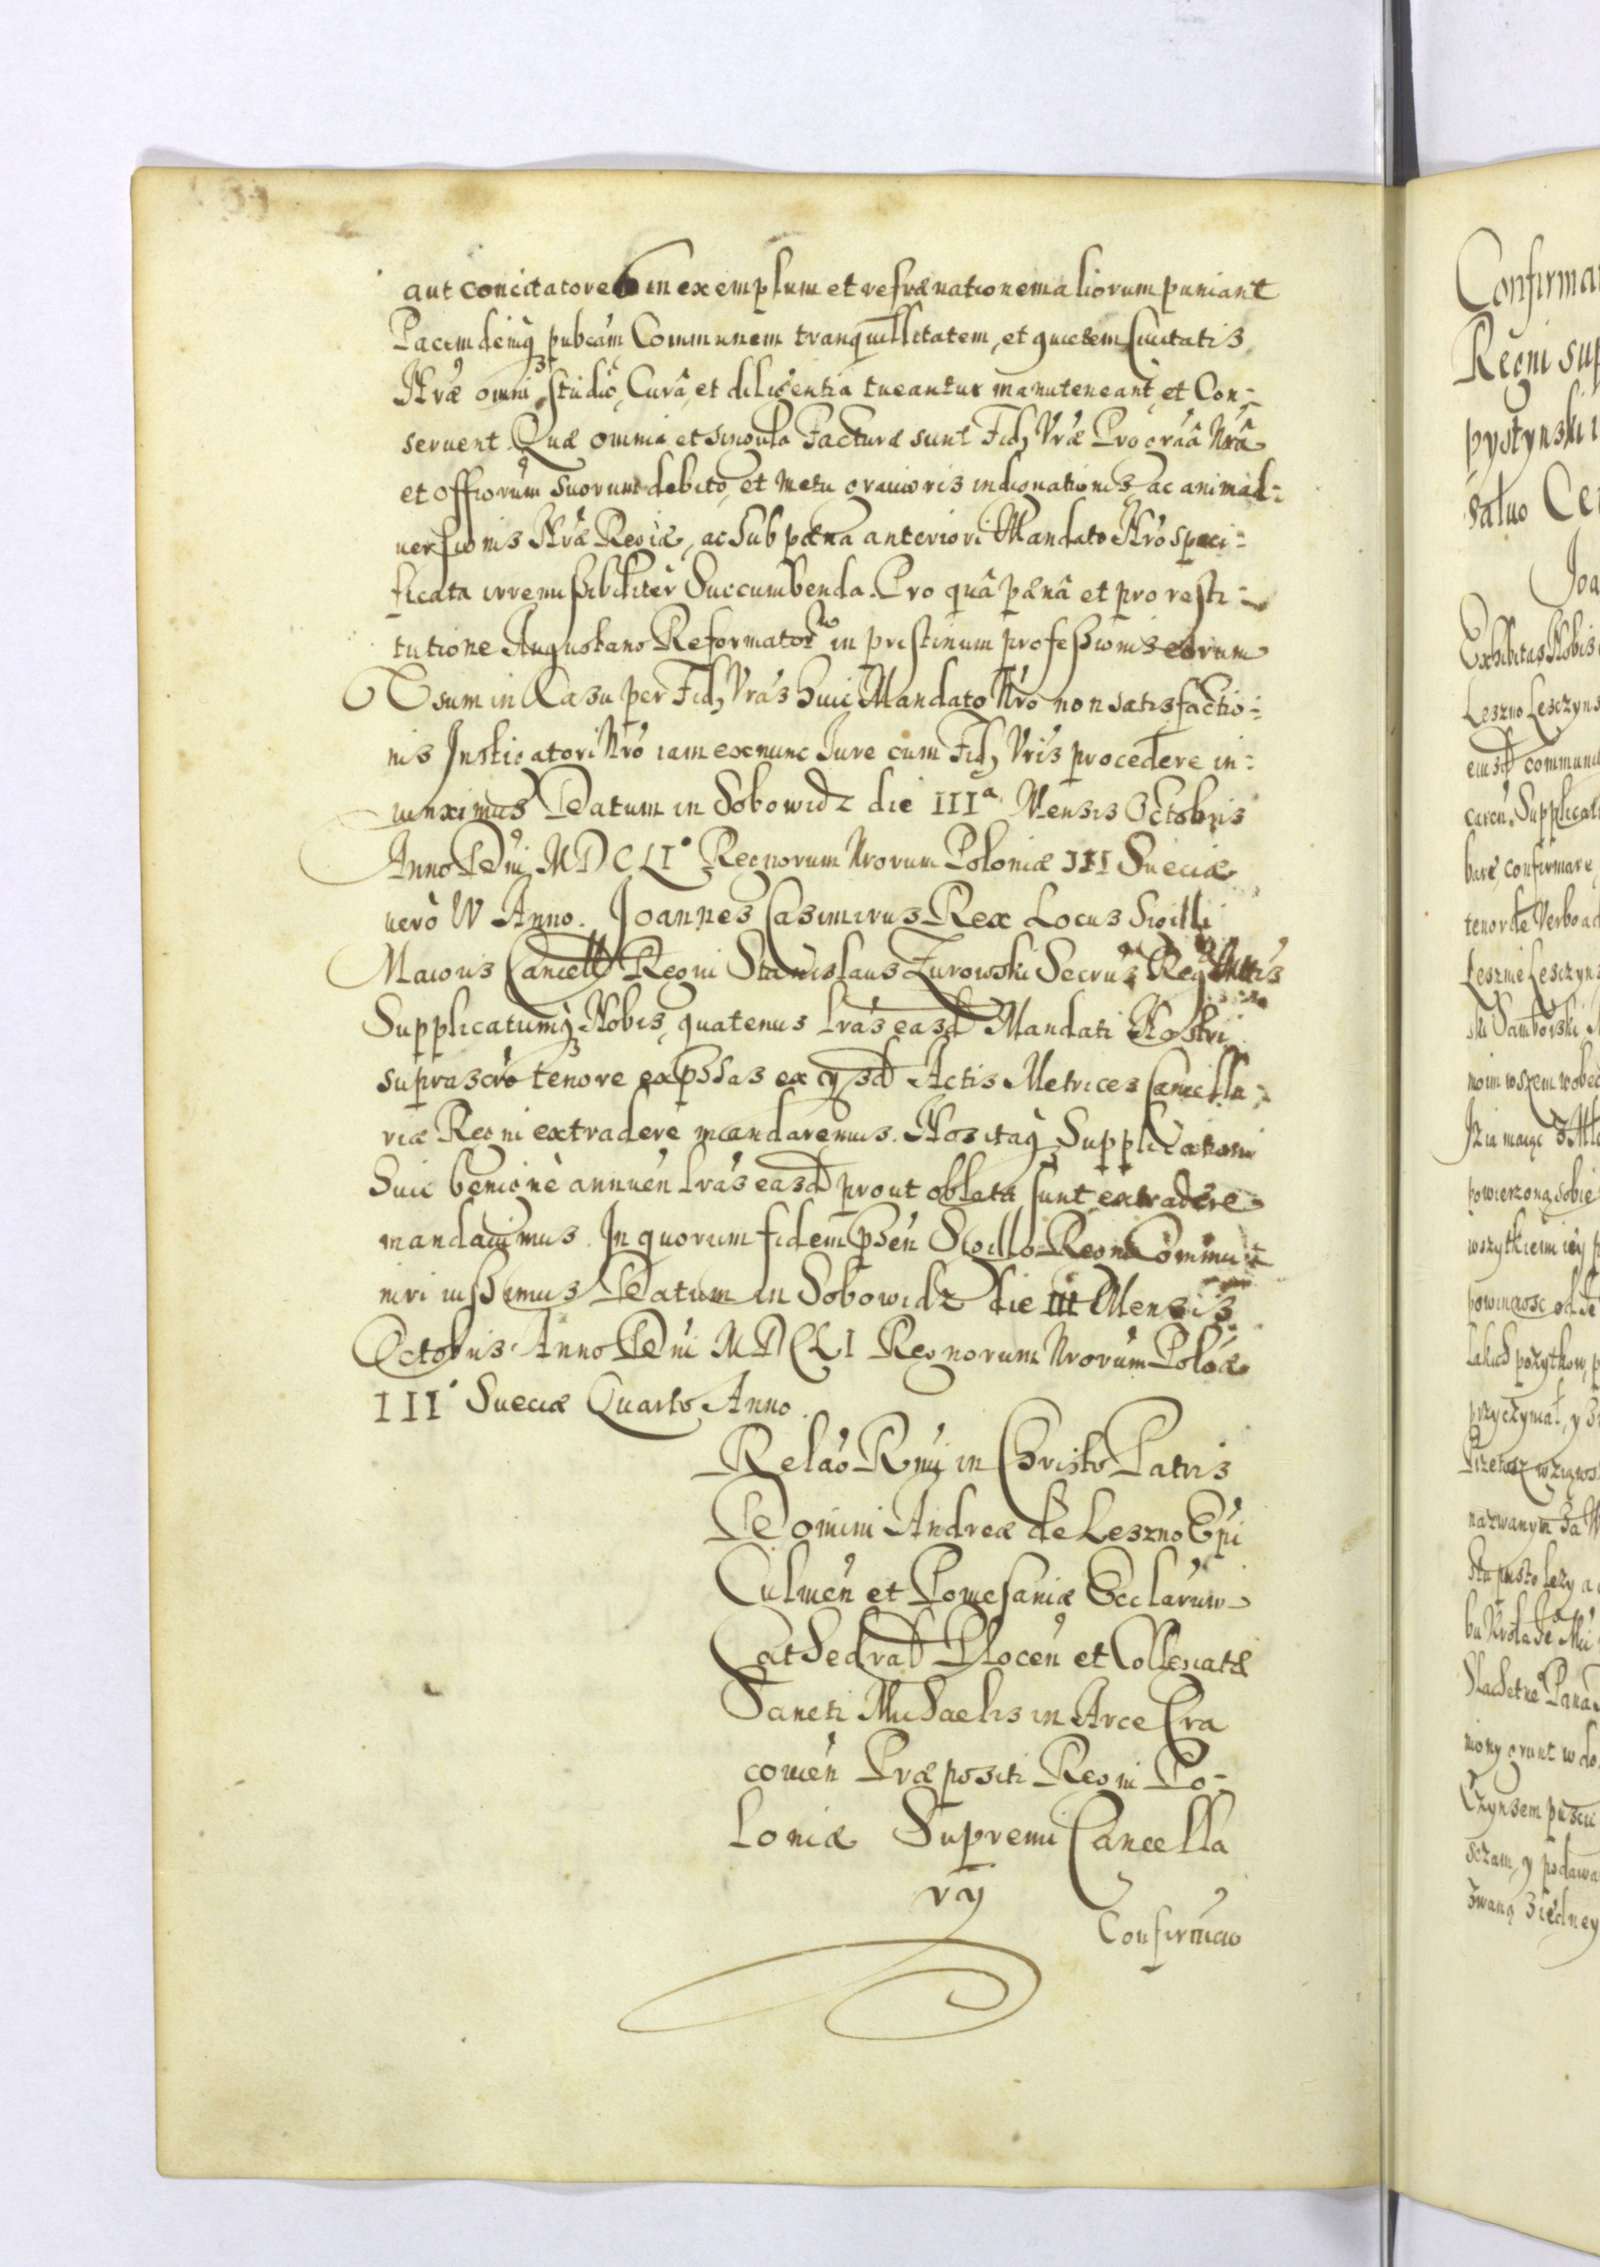 aut concitatores in exemplum et refrænationem aliorum puniant
Pacem deniq; pubcam Communem tranquillitatem, et quietem Civitatis
Nræ omni studio, Curâ, et diligentia tueantur manuteneant, et Con-
seruent Quæ omnia et singula Facturæ sunt Fid. Vræ Pro grãâ Nrâ
et offiorum suorum debito, et metu grauioris indignationis, ac animad-
uersionis Nræ Regiæ, ac sub pœna anteriori Mandato Nro speci-
ficata irremissibiliter Succumbenda. Pro quâ pænâ et pro resti-
tutione Augustano Reformator in pristinum professionis eorum
Usum in Casu per Fid. Vras huic Mandato Nro non satisfactio-
nis Instigatori Nro iam ex nunc Iure cum Fid. Vris procedere in-
iunximus Datum in Sobowidz die IIIa Mensis Octobris
Anno Dni MDCLIo Regnorum Nrorum Poloniæ III Sueciæ
verò IV Anno. Joannes Casimirus Rex Locus Sigilli
Maioris Cancell Regni Stanislaus Zurowski Secrus Reg Mttis
Supplicatumq; Nobis, quatenus lras easd Mandati Nostri
suprascro tenore expssas ex ijsd Actis Metrices Cancella-
riæ Regni extradere mandaremus. Nos itaq; Supplicationi
Huic benignè annuen lras easd prout oblatæ sunt extradere
mandauimus. In quorum fidem psen Sigillo Regni Commu-
niri iussimus Datum in Sobowidz die III Mensis
Octobris Anno Dni MDCLI Regnorum Nrorum Poloæ
III Sueciæ Quarto Anno.
Relao Rmi in Christo Patris
Domini Andreæ de Leszno Epi
Culmen et Pomesaniæ Ecclarum
Cathedral Plocen et Collegiatæ
Sancti Michaelis in Arce Cra
couien Præpositi Regni Po-
loniæ Supremi Cancella
rij
Confirmao
Confirma
Regni sup
pystynski
saluo Ce
Joa
Exhibitas Nobis
Leszno Lesczyns
eiusd communi
Supplicat
bare, confirmare,
tenor de Verbo ad
Lesznie Lesczyns
ski Samborski
powierzoną sobie
wszytkiemi iey
pożytkow, p
przyczyniał, y
nazwanym
Slachetne Pana
grunt w do
Czynszem
y podawa